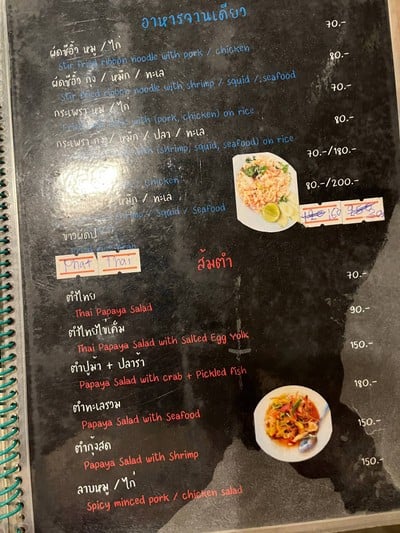 อาหารจานเดียว
ผัดซีอิ๊ว หมู / ไก่ 70.-
Stir fried ribbon noodle with pork / chicken
ผัดซีอิ๊ว กุ้ง / หมึก / ทะเล 80.-
Stir fried ribbon noodle with shrimp / squid / seafood
กระเพรา หมู / ไก่ 70.-
with (pork, chicken) on rice
กระเพรา กุ้ง / หมึก / ปลา / ทะเล 80.-
with (shrimp, squid, seafood) on rice
70.-/180.-
chicken
หมึก / ทะเล 80.-/200.-
/ squid / seafood
ข้าวผัดปู 160
Phat Thai
ส้มตำ
ตำไทย 70.-
Thai Papaya Salad
ตำไทยไข่เค็ม 90.-
Thai Papaya Salad with Salted Egg Yolk
ตำปูม้า + ปลาร้า 150.-
Papaya Salad with Crab + Pickled fish
ตำทะเลรวม 180.-
Papaya Salad with Seafood
ตำกุ้งสด 150.-
Papaya Salad with Shrimp
ลาบหมู / ไก่ 150.-
Spicy minced pork / chicken salad